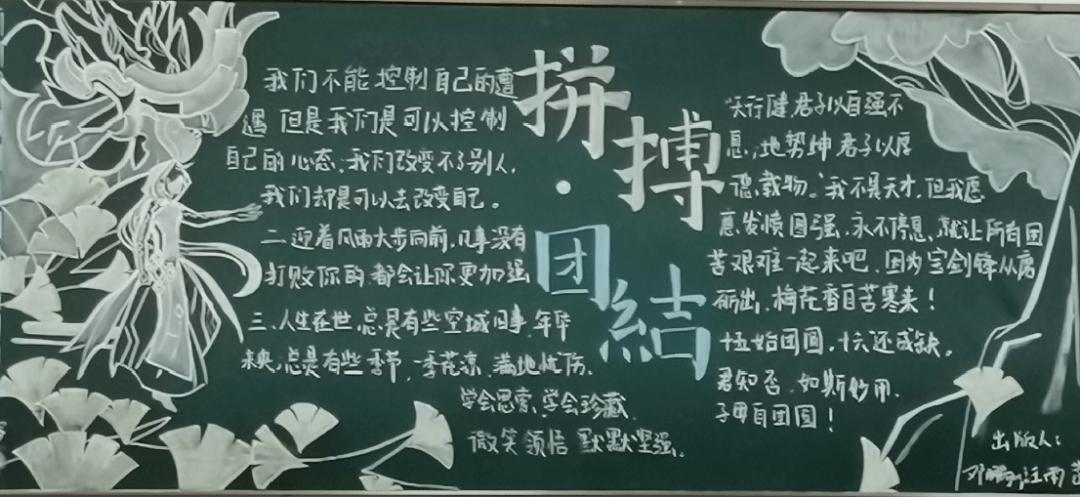 我们不能控制自己的遭
遇但是我们是可以控制
自己的心态,我们改变不了别人,
我们却是可以去改变自己。
二、迎着风雨大步向前,凡事没有
打败你的都会让你更加强
三、人生在世,总是有些空城旧事,年华
未央,总是有些季节,一季花凉,满地忧伤.
学会思索、学会珍藏,
微笑领悟 默默坚强。
拼搏
·
团結
"天行健,君子以自强不
息,地势坤君子以厚
德载物。"我不是天才,但我愿
意发愤图强、永不停息、就让所有困
苦艰难一起来吧,因为宝剑锋从磨
砺出,梅花香自苦寒来!
十五始团圆,十六还成缺。
君知否,如斯妙用,
子母自团圆!
出版人: